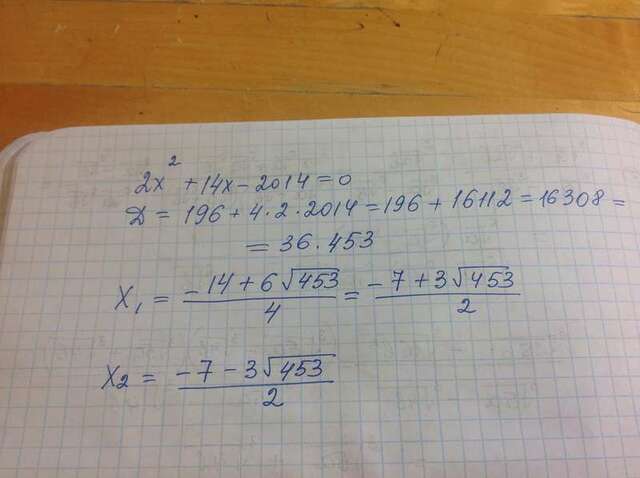 2x² + 14x - 2014 = 0
D = 196 + 4 · 2 · 2014 = 196 + 16112 = 16308 =
= 36 · 453
X₁ = (-14 + 6√453)/4 = (-7 + 3√453)/2
X₂ = (-7 - 3√453)/2